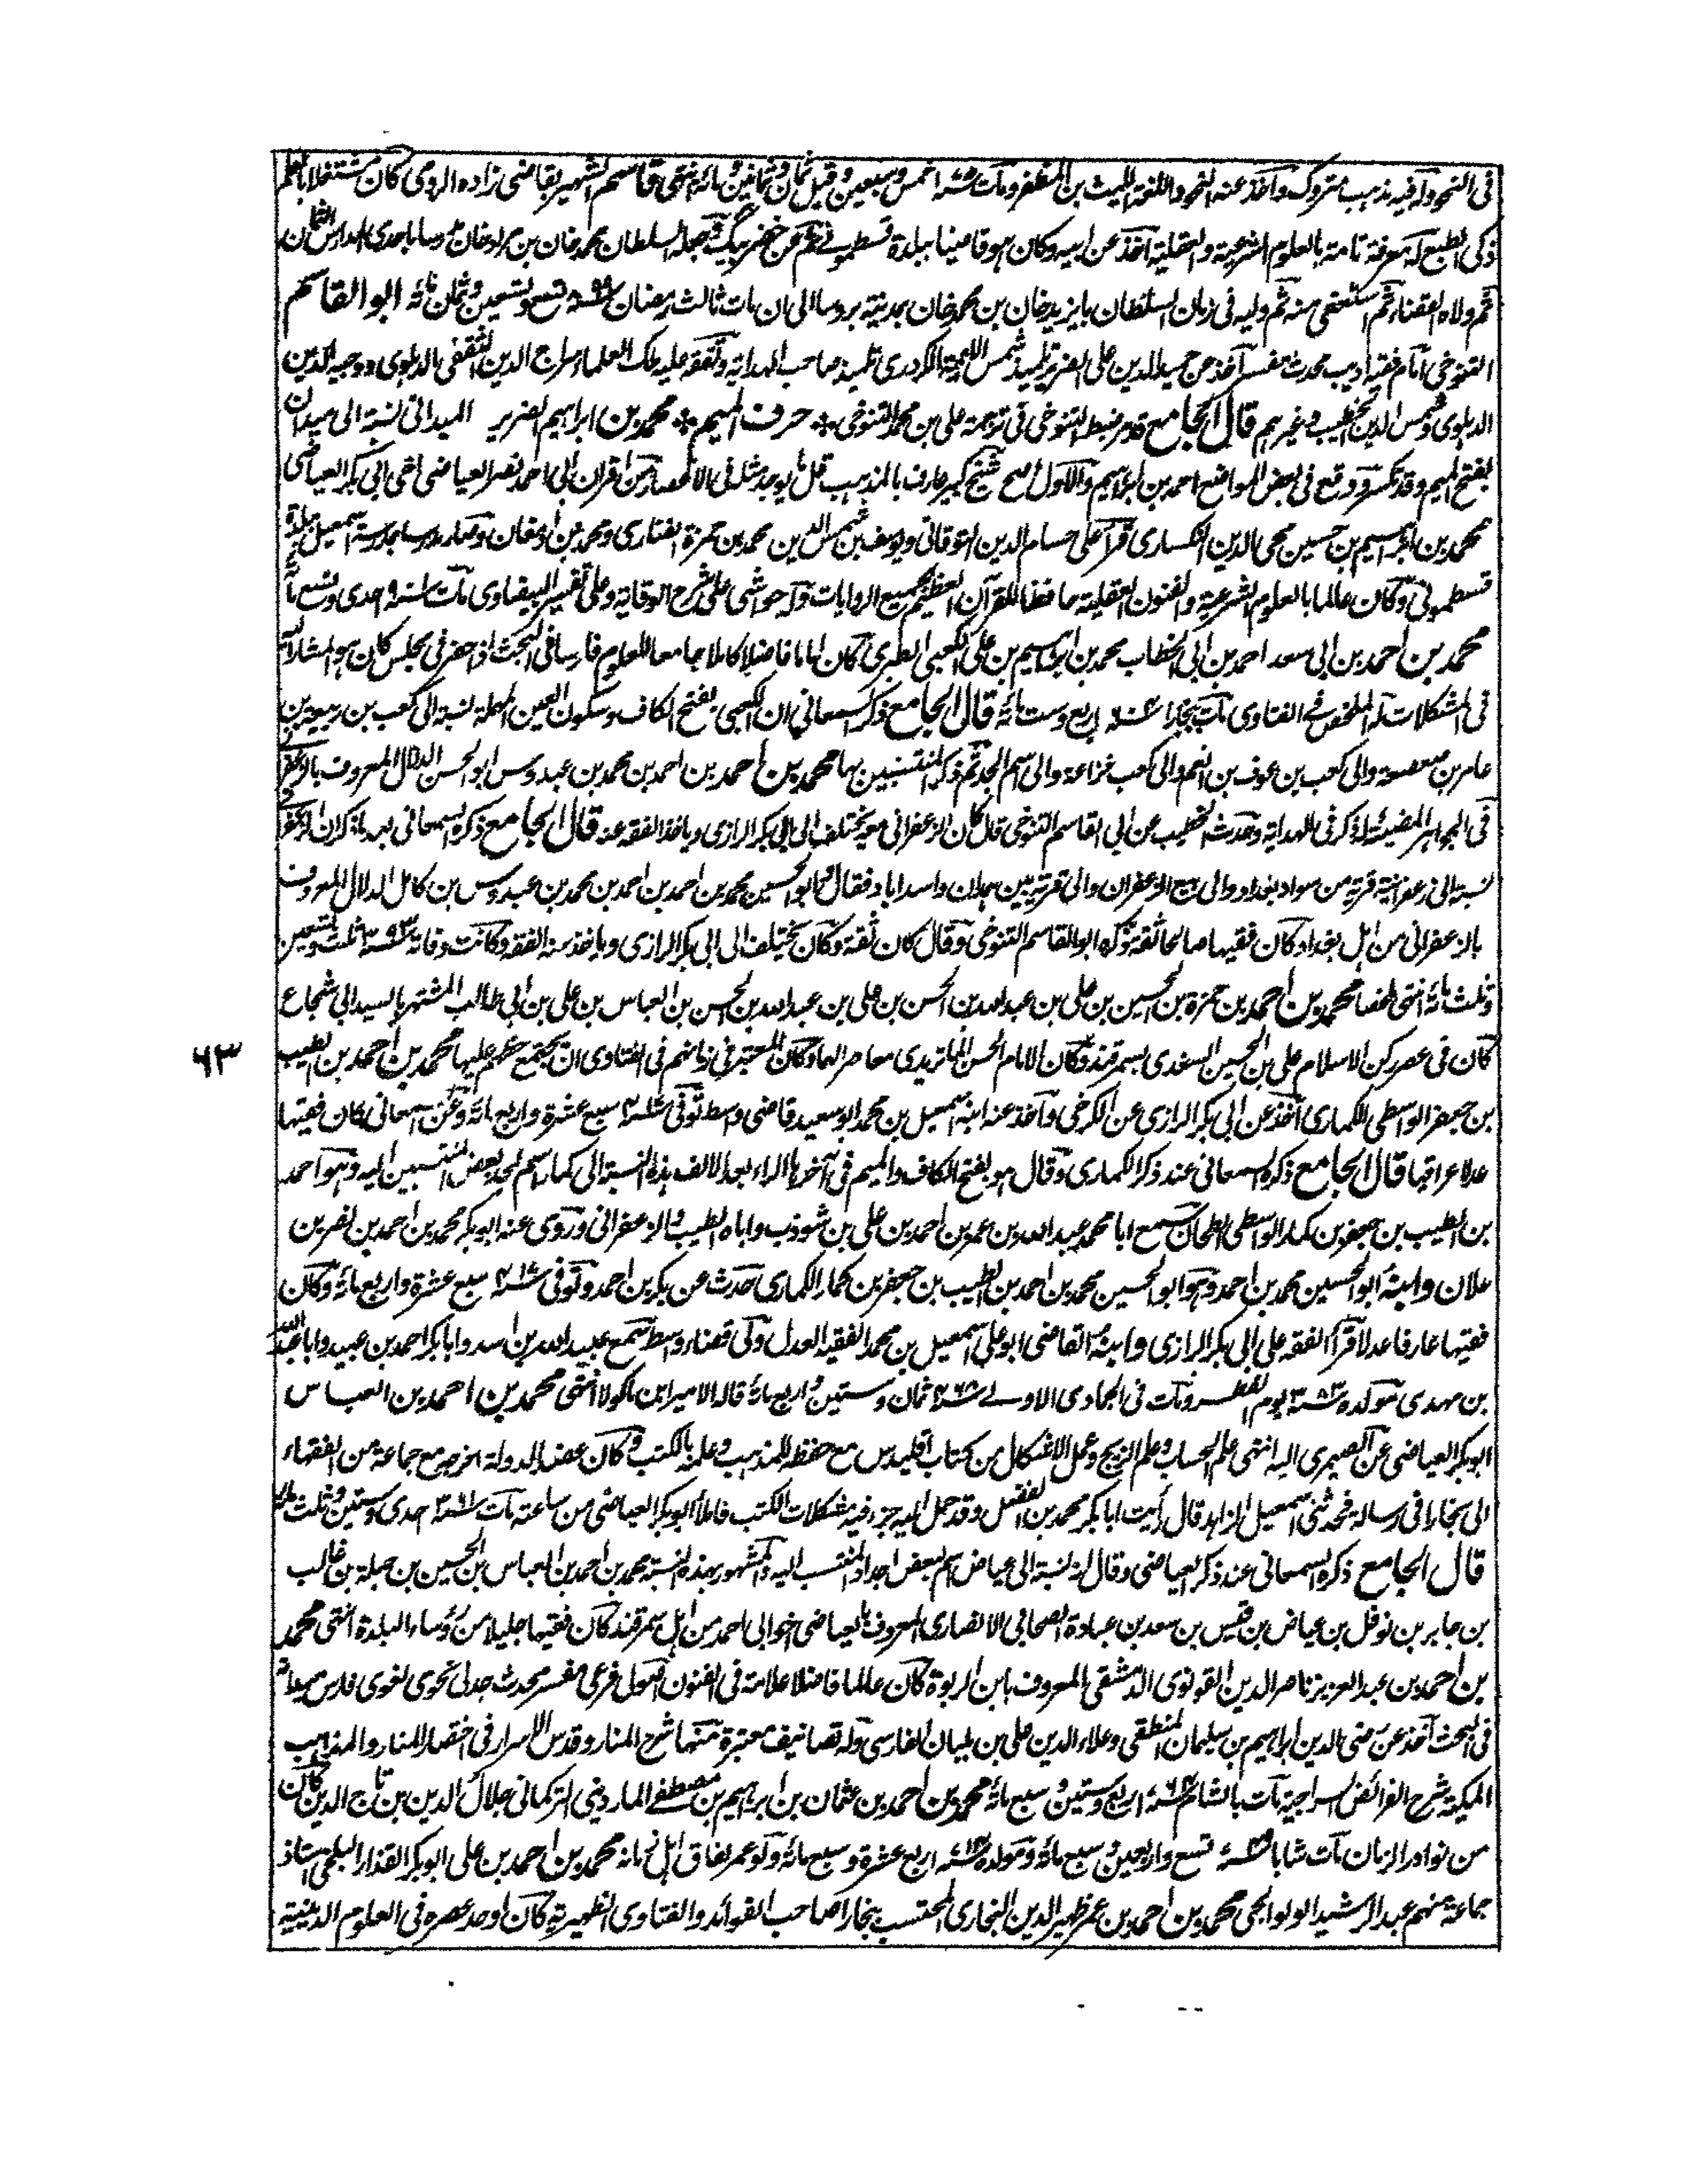 فی النحو وله فیه مذہب متروک واخذ عنه النحو واللغة اللیث بن المظفر ومات سنة ۱۷۵ خمس وسبعین وقیل ثمان وثمانین ومائة انتهی قاسم الشهیر بقاضی زاده الرومی کان مشتغلا بالعلم
ذکی الطبع له معرفة تامة بالعلوم الشرعیة والعقلیة اخذ عن ابیه وکان هو قاضیا ببلدة قسطمونی ثم عن خضر بیک وجعله السلطان محمد خان بن مراد خان مدرسا باحدی المدارس الثمان
ثم ولاه القضاء ثم استعفی منه ثم ولیه فی زمان السلطان بایزید خان بن محمد خان بمدینة بروسا الی ان مات ثالث رمضان سنة ۸۹۹ تسع وتسعین وثمان مائة ابو القاسم
التنوخی امام فقیه ادیب محدث مفسر اخذ عن حمید الدین علی الضریر تلمیذ شمس الائمة الکردری تلمیذ صاحب الهدایة وتفقه علیه ملک العلماء سراج الدین الثقفی الدہلوی ووجیه الدین
الدہلوی وشمس الدین الخطیب وغیرهم قال الجامع قد مر ضبط التنوخی فی ترجمة علی بن محمد التنوخی * حرف المیم * محمد بن ابراہیم الضریر المیدانی نسبة الی میدان
بفتح المیم وقد تکسر ووقع فی بعض المواضع احمد بن ابراہیم والاول اصح شیخ کبیر عارف بالمذہب قل ما یوجد مثله فی الاعصار من اقران ابی احمد نصر العیاضی اخی ابی بکر العیاضی
محمد بن ابراہیم بن حسین محی الدین النکساری قرأ علی حسام الدین التوقاتی ویوسف بن شمس الدین محمد بن حمزة الفناری ومحمد بن ارمغان وصار مدرسا بمدرسة اسمعیل ببلدة
قسطمونی وکان عالما بالعلوم الشرعیة والفنون العقلیة حافظا للقرآن العظیم بجمیع الروایات وله حواشی علی شرح الوقایة وعلی تفسیر البیضاوی مات سنة ۹۰۱ احدی وتسع مائة
محمد بن احمد بن ابی سعد احمد بن ابی الخطاب محمد بن ابراہیم بن علی الکعبی الطبری کان اماما فاضلا کاملا جامعا للعلوم فارسا فی البحث اذا حضر فی مجلس کان هو المشار الیه
فی المشکلات له الملخص فی الفتاوی مات ببخارا سنة ۶۰۴ اربع وست مائة قال الجامع ذکر السمعانی ان الکعبی بفتح الکاف وسکون العین المهملة نسبة الی کعب بن ربیعة بن
عامر بن صعصعة والی کعب بن عوف بن انعم والی کعب خزاعة والی اسم الجد ثم ذکر المنتسبین بها محمد بن احمد بن احمد بن محمد بن عبدوس ابو الحسن الدلال المعروف بالزعفرانی
فی الجواہر المضیئة له ذکر فی الهدایة وحدث الخطیب عن ابی القاسم التنوخی قال کان الزعفرانی هو یختلف الی ابی بکر الرازی ویاخذ الفقه عنه قال الجامع ذکره السمعانی بعد ما ذکر ان الزعفرانی
نسبة الی زعفرانیة قریة من سواد بغداد والی بیع الزعفران والی قریة بین همدان واسداباد فقال ابو الحسین محمد بن احمد بن احمد بن محمد بن عبدوس بن کامل الدلال المعروف
بالزعفرانی من اهل بغداد کان فقیها صالحا ثقة ذکره ابو القاسم التنوخی وقال کان ثقة وکان یختلف الی ابی بکر الرازی ویاخذ منه الفقه وکانت وفاته سنة ۳۹۳ ثلث وتسعین
وثلث مائة انتهی ملخصا محمد بن احمد بن حمزة بن الحسین بن علی بن عبد الله بن الحسن بن علی بن عبد الله بن الحسن بن العباس بن علی بن ابی طالب المشتهر بالسید ابی شجاع
کان فی عصر رکن الاسلام علی بن الحسین السغدی بسمرقند وکان الامام الحسن الماتریدی معاصرا لهما وکان المعتبر فی زمانهم فی الفتاوی ان یجتمع خطهم علیها محمد بن احمد بن الطیب
۶۳
بن جعفر الواسطی الکماری اخذ عن ابی بکر الرازی عن الکرخی واخذ عنه ابنه اسمعیل بن محمد ابو سعید قاضی واسط توفی سنة ۴۱۷ سبع عشرة واربع مائة وعن السمعانی کان فقیها
عدلا عراقیا قال الجامع ذکره السمعانی عند ذکر الکماری وقال هو بفتح الکاف والمیم فی آخرها الراء بعد الالف هذه النسبة الی کمار اسم لجد بعض المنتسبین الیه وهو احمد
بن الطیب بن جعفر بن کمار الواسطی الطحان سمع ابا محمد عبد الله بن عمر بن احمد بن علی بن شوذب واباه الطیب والزعفرانی وروی عنه ابو بکر محمد بن احمد بن نصر بن
علان وابنه ابو الحسین محمد بن احمد وهو ابو الحسین محمد بن احمد بن الطیب بن جعفر بن کمار الکماری حدث عن بکر بن احمد وتوفی سنة ۴۱۷ سبع عشرة واربع مائة وکان
فقیها عارفا عدلا قرأ الفقه علی ابی بکر الرازی وابنه القاضی ابو علی اسمعیل بن محمد الفقیه العدل ولی قضاء واسط سمع عبید الله بن اسد وابا بکر احمد بن عبید وابا عبد الله
بن مهدی مولده سنة یوم الفطر ومات فی الجمادی الاولی سنة ۴۶۸ ثمان وستین واربع مائة قاله الامیر ابن ماکولا انتهی محمد بن احمد بن العباس
ابو بکر العیاضی عن الصیمری الیه انتهی علم الحساب وعلم الزیج وعمل الاشکال من کتاب اقلیدس مع حفظه للمذهب وعلمه بالکتب وکان عضد الدولة اخرجه مع جماعة من الفقهاء
الی بخارا فی رسالة فحدثنی اسمعیل الزاهد قال رأیت ابا بکر محمد بن الفضل وقد حمل الیه جزء فیه مشکلات الکتب فاملأ ابو بکر العیاضی من ساعته مات سنة ۳۶۱ احدی وستین وثلث مائة
قال الجامع ذکره السمعانی عند ذکر العیاضی وقال انه نسبة الی عیاض اسم لبعض اجداد المنتسب الیه والمشهور بهذه النسبة محمد بن احمد بن العباس بن الحسین بن جبلة بن غالب
بن جابر بن نوفل بن عیاض بن قیس بن سعد بن عبادة الصحابی الانصاری المعروف بالعیاضی اخو ابی احمد من اهل سمرقند کان فقیها جلیلا من رؤساء البلدة انتهی محمد
بن احمد بن عبد العزیز ناصر الدین القونوی الدمشقی المعروف بابن الربوة کان عالما فاضلا علامة فی الفنون اصولی فرعی مفسر محدث جدلی نحوی لغوی فارس میدانه
فی البحث اخذ عن رضی الدین ابراہیم بن سلیمان المنطقی وعلاء الدین علی بن بلبان الفارسی وله تصانیف معتبرة منها شرح المنار وقدس الاسرار فی اختصار المنار والمواهب
المکیة شرح الفرائض السراجیة مات بالشام سنة ۷۶۴ اربع وستین وسبع مائة محمد بن احمد بن عثمان بن ابراہیم بن مصطفی الماردینی الترکمانی جلال الدین بن تاج الدین کان
من نوادر الزمان مات شابا سنة ۷۴۹ تسع واربعین وسبع مائة ومولده سنة ۷۱۴ اربع عشرة وسبع مائة ولو عمر لفاق اهل زمانه محمد بن احمد بن علی ابو بکر القزاز البلخی استاذ
جماعة منهم عبد الرشید الولوالجی محمد بن احمد بن عمر ظهیر الدین البخاری المحتسب ببخارا صاحب الفوائد والفتاوی الظهیریة کان اوحد عصره فی العلوم الدینیة